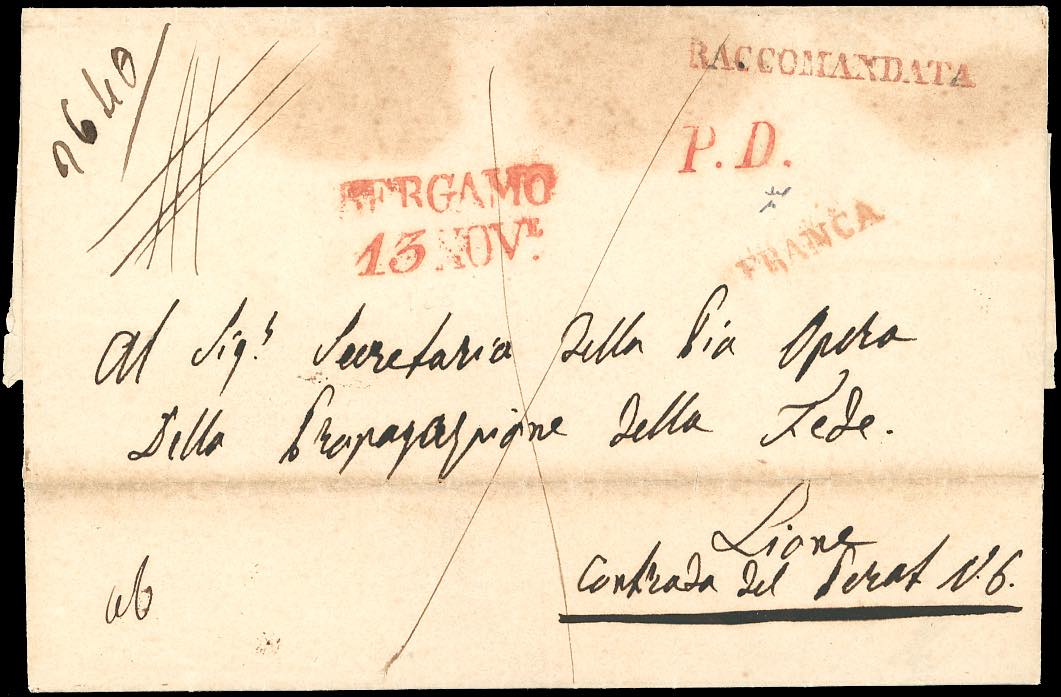 RACCOMANDATA
P. D.
BERGAMO
13 NOVʳᴱ.
FRANCA
Al Sigʳ Secretario Della Pia Opera
Della Propagazione della Fede.
Lione
Contrada del Perat N. 6.